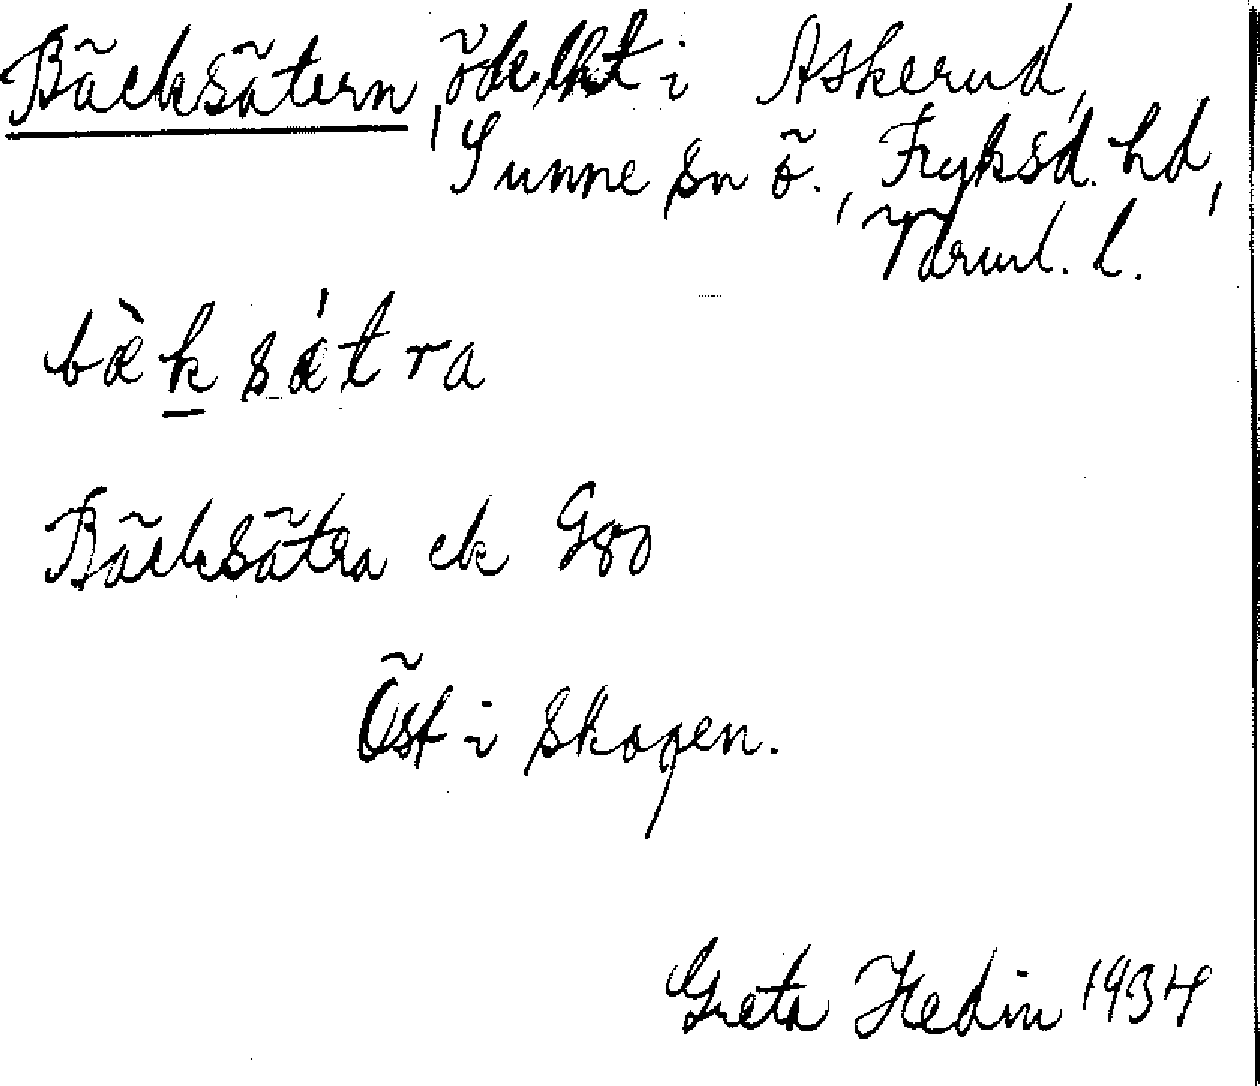 Bäcksätern, ödelht i Askerud,
Sunne sn ö., Fryksd. hd,
Värml. l.
bæ̀ksǽtra
Bäcksätra ek G80
Öst i skogen.
Greta Hedin 1934